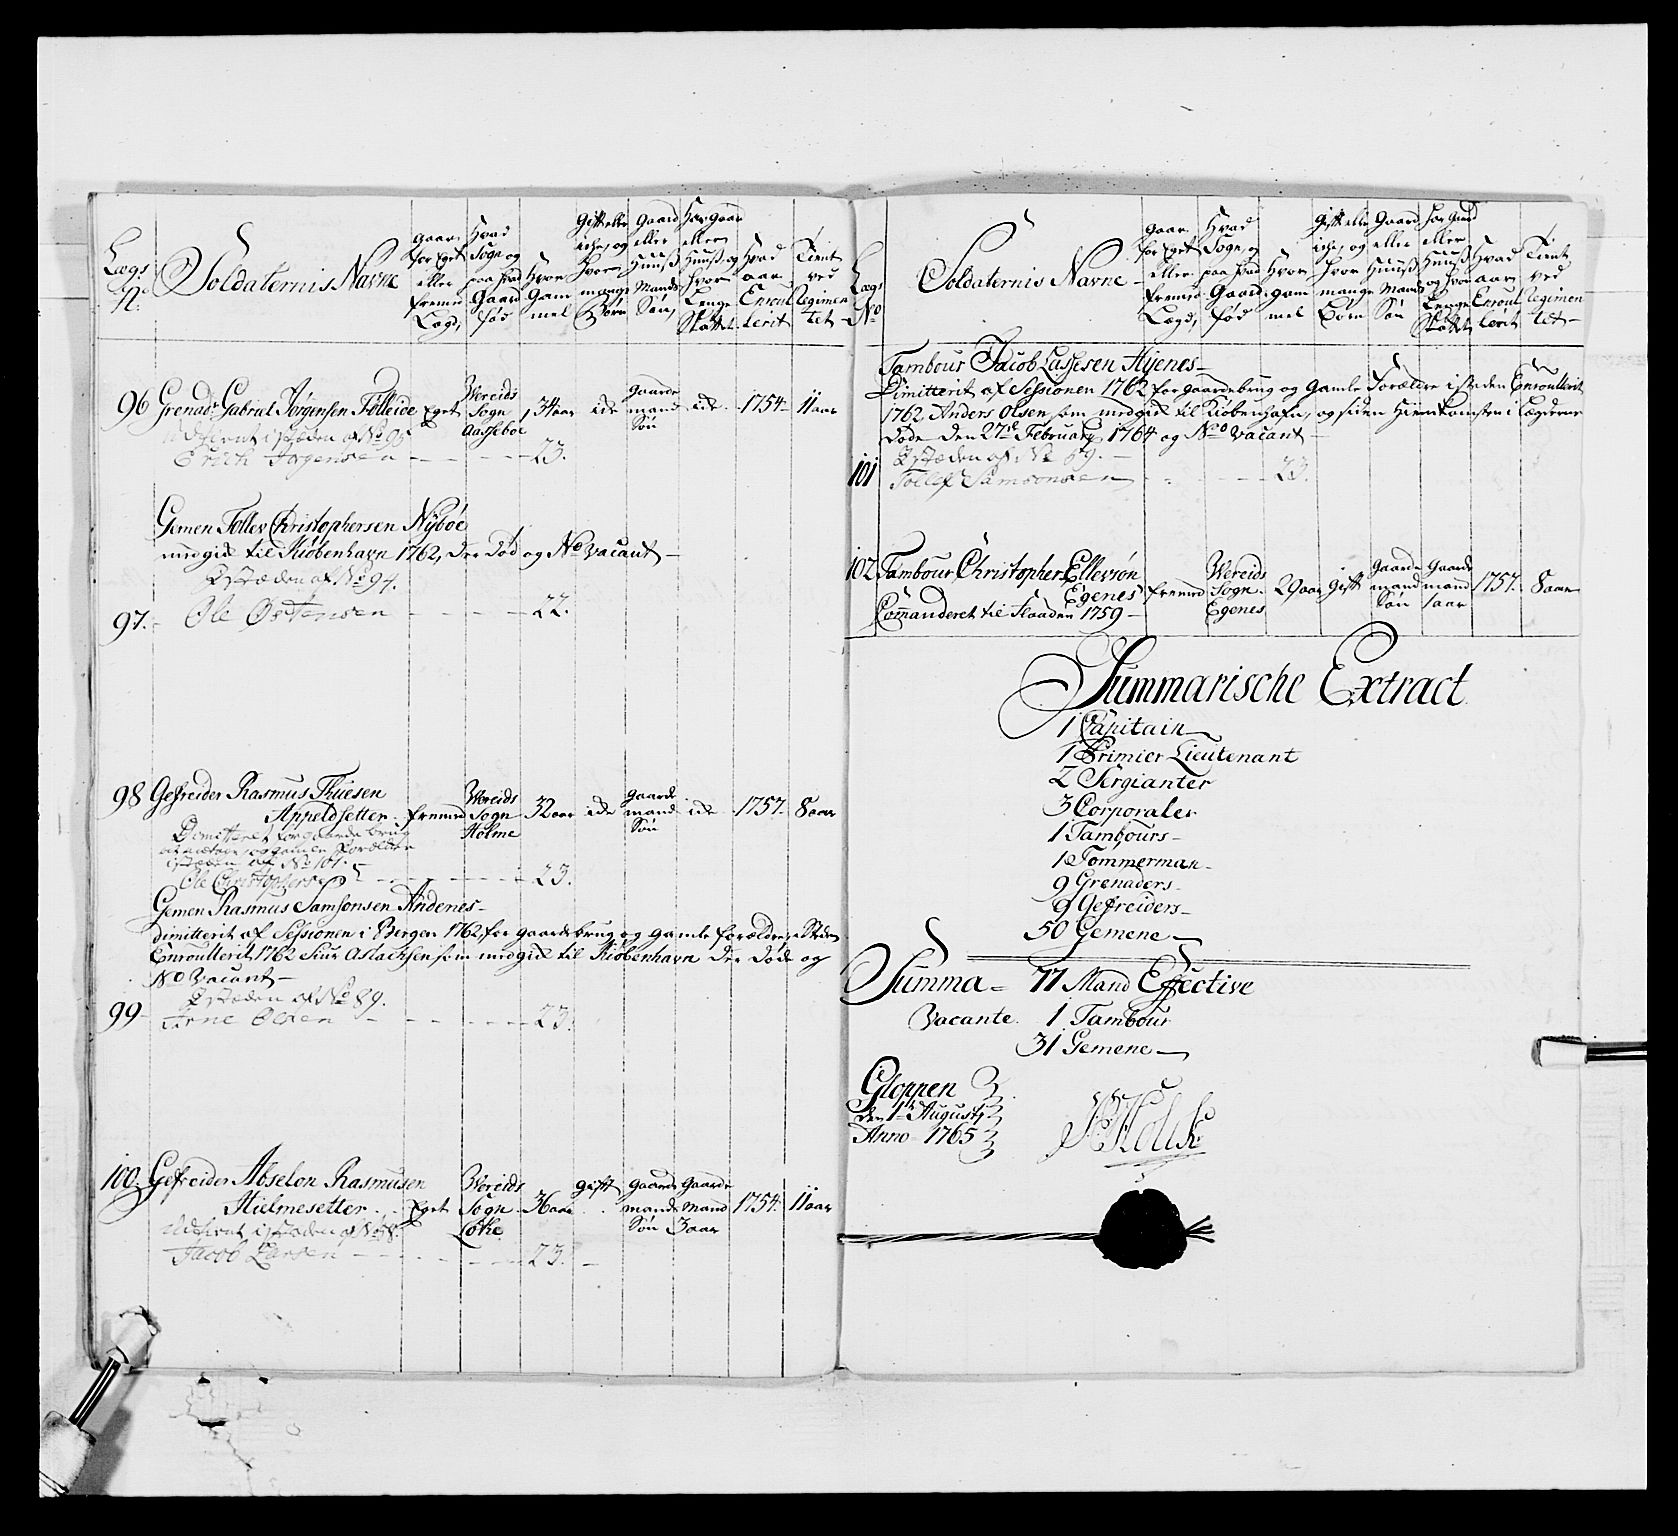 Lægs
No
Soldaternis Navne
Gaar
for Eget
eller
fremed
Lægd,
Hvad
Sogn og
paa hvad
Gaard
fød
Hvor
Gam
mel
Gift eller
iche, og
Hvor
mange
Børn
Gaard
eller
Huuß
Mands
Søn,
Har gaard
eller
Huuß, og
hvor
Lenge
Støttet
Hvad
aar
Enroul
lerit
Tient
ved
Regimen
tet
96 Grenadr Gabriel Jørgensen Følleide Eget Vereids Sogn Aasseboe 34 aar ide gaarde mand Søn ide 1754 11 aar
Udtient istæden af No 95
Erich Jørgensen 23.
Gemen Tollev Christophersen Nyboe
medgik til Kiøbenhavn 1762, der død og No vacant
Istæden af No 94.
97. Ole Østensen 22.
98 Gefreider Rasmus Thuesen
Appeldsetter fremed Vereids Sogn Holme 32 aar ide gaarde mand Søn ide 1757 8 aar
Dimitteret for gaarde brug
istæden af No 101.
Ole Christophersen 23.
Gemen Rasmus Samsonsen Andenes
dimitterit af Sessionen i Bergen 1762, for gaardebrug og gamle forældre, i Steden
Enroullerit 1762 Siur Aslachsen, som medgik til Kiøbenhavn der døde og
No Vacant
Istæden af No 89.
99 Arne Olsen 23.
100. Gefreider Abselon Rasmusen
Hielmesetter Eget Vereids Sogn Løke 36 aar gift gaarde mands Søn Gaarde mand 3 aar 1754 11 aar
Udtient, istæden af No 98.
Jacob Larsen 23.
Lægs
No
Soldaternis Navne
Gaar
for Eget
eller
fremed
Lægd,
Hvad
Sogn, og
paa hvad
Gaard
fød
Hvor
gam
mel
Gift eller
iche, og
hvor
mange
Børn
Gaard
eller
Huuß
Mands
Søn
har Gaard
eller
Huuß
og hvor
Lenge
Støttet
Hvad
aar
Enroul
lerit
Tient
ved
Regimen
tet
Tambour Jacob Lassesen Hyenes
Dimitterit af Sessionen 1762 for gaardebrug og Gamle Forældre isteden Enroullerit
1762 Anders Olsen, som medgik til Kiøbenhafn, og siden Hiemkomsten i Lægderne
døde den 27de February 1764 og No vacant
Istæden af No 59.
101 Tollef Samsonsen 23.
102 Tambour Christopher Ellevsøn
Egenes fremed Vereids Sogn Egenes 29 aar gift Gaarde mand Søn Gaarde mand 1 aar 1757 8 aar
Commanderet til Flaaden 1759
Summarische Extract
1 Capitain
1 Primier Lieutenant
2 Sergianter
3 Corporaler
1 Tambours
1 Tømmerman
9 Grenaders
9 Gefreiders
50 Gemene
Summa = 77 Mand Effective
Vacante. 1 Tambour
31 Gemene
Gloppen
den 1te Augusty
Anno 1765